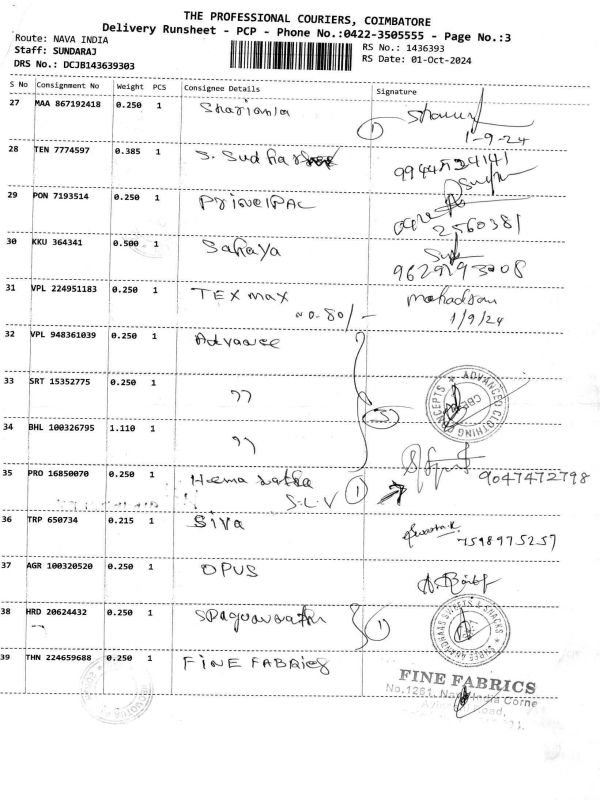 THE PROFESSIONAL COURIERS, COIMBATORE
Delivery Runsheet - PCP - Phone No.:0422-3505555 - Page No.:3
Route: NAVA INDIA
Staff: SUNDARAJ
DRS No.: DCJB143639303
RS No.: 1436393
RS Date: 01-Oct-2024
S No Consignment No Weight PCS Consignee Details Signature
27 MAA 867192418 0.250 1
1
1-9-24
28 TEN 7774597 0.385 1 S.
29 PON 7193514 0.250 1
2560381
30 KKU 364341 0.500 1 Sahaya
31 VPL 224951183 0.250 1 TEX max
1/9/24
32 VPL 948361039 0.250 1 Advance
33 SRT 15352775 0.250 1 ״
ADVANCED CLOTHING CONCEPTS
CBE
34 BHL 100326795 1.110 1 ״
35 PRO 16850070 0.250 1 Hema latha
S.L.V 1
9047472798
36 TRP 650734 0.215 1 Siva
7598975257
37 AGR 100320520 0.250 1 OPUS
38 HRD 20624432 0.250 1
1
SHREE ANANDHAAS SWEETS & SNACKS
39 THN 224659688 0.250 1 FINE FABRICS
FINE FABRICS
No.1281, Nava India Corne
Road,